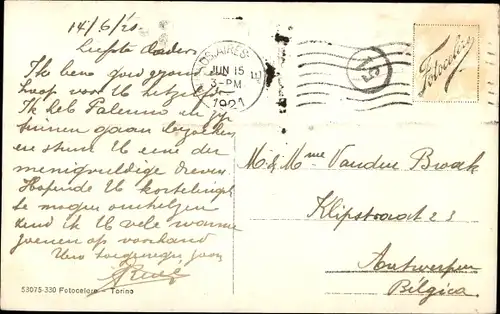 14/6/21.
Liefste Ouders
Ik ben goed gezond
hoop voor U hetzelfde
Ik heb Palermo en zijn
tuinen gaan bezoeken
en stuur U een der
menigvuldige dreven
Hopende U kortelings
te mogen omhelzen
zend ik U vele warme
zoenen op voorhand
Uw toegenegen zoon
BUENOS AIRES
JUN 15
3-PM
1921
Fotocelere
M & Mme Vanden Broeck
Klipstraat 23
Antwerpen
Belgica
53075-330 Fotocelere - Torino